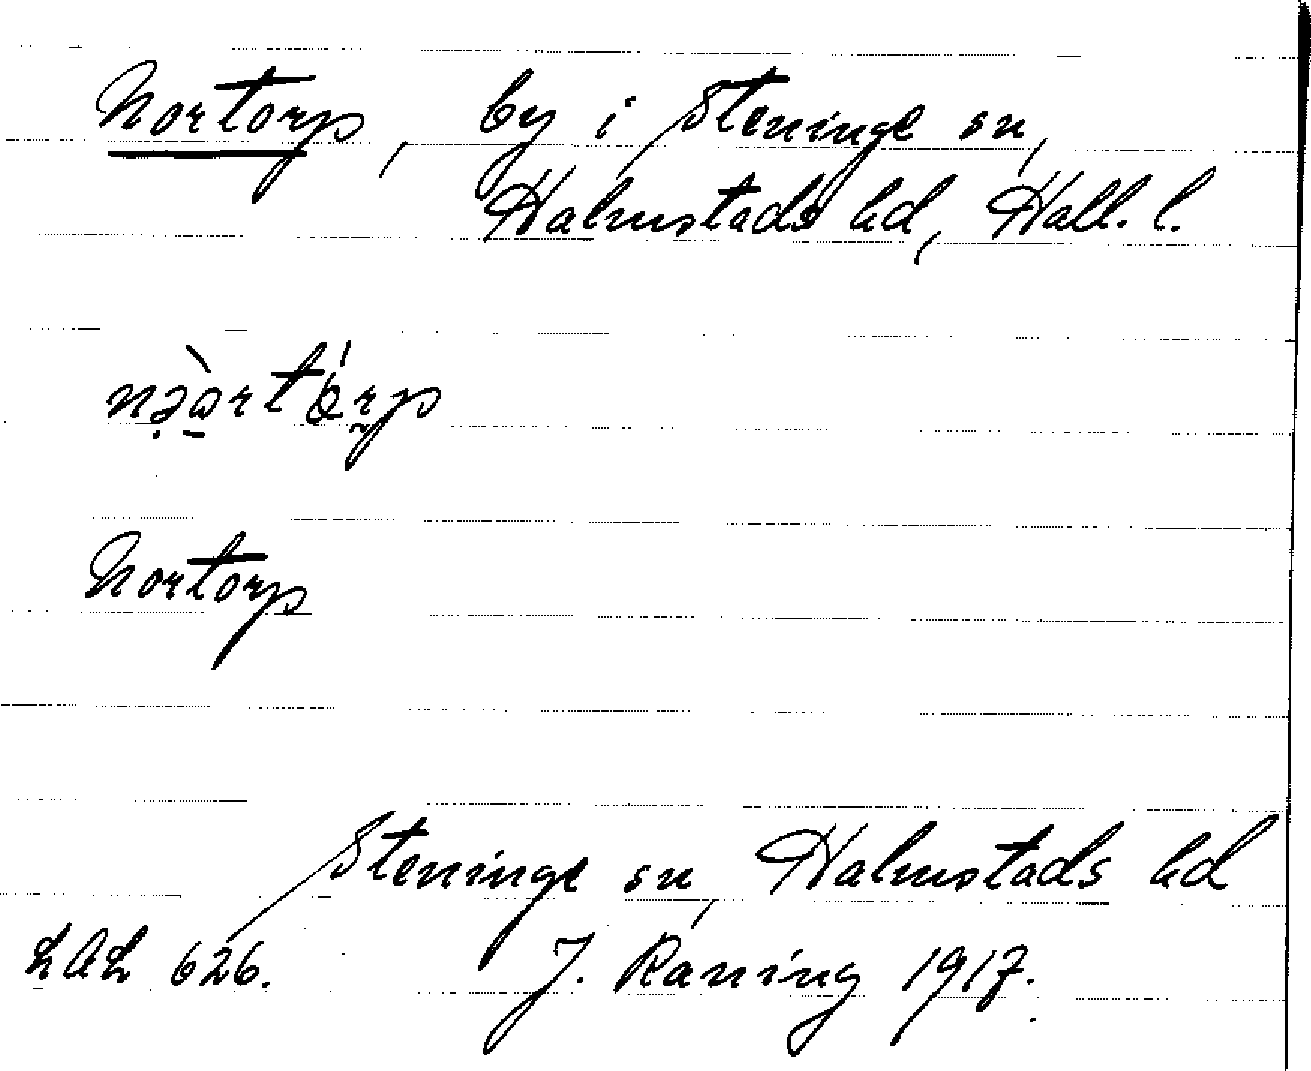 Nortorp, by i Steninge sn,
Halmstads hd, Hall. l.
Nortorp
Steninge sn, Halmstads hd
LAL 626. J. Raning 1917.